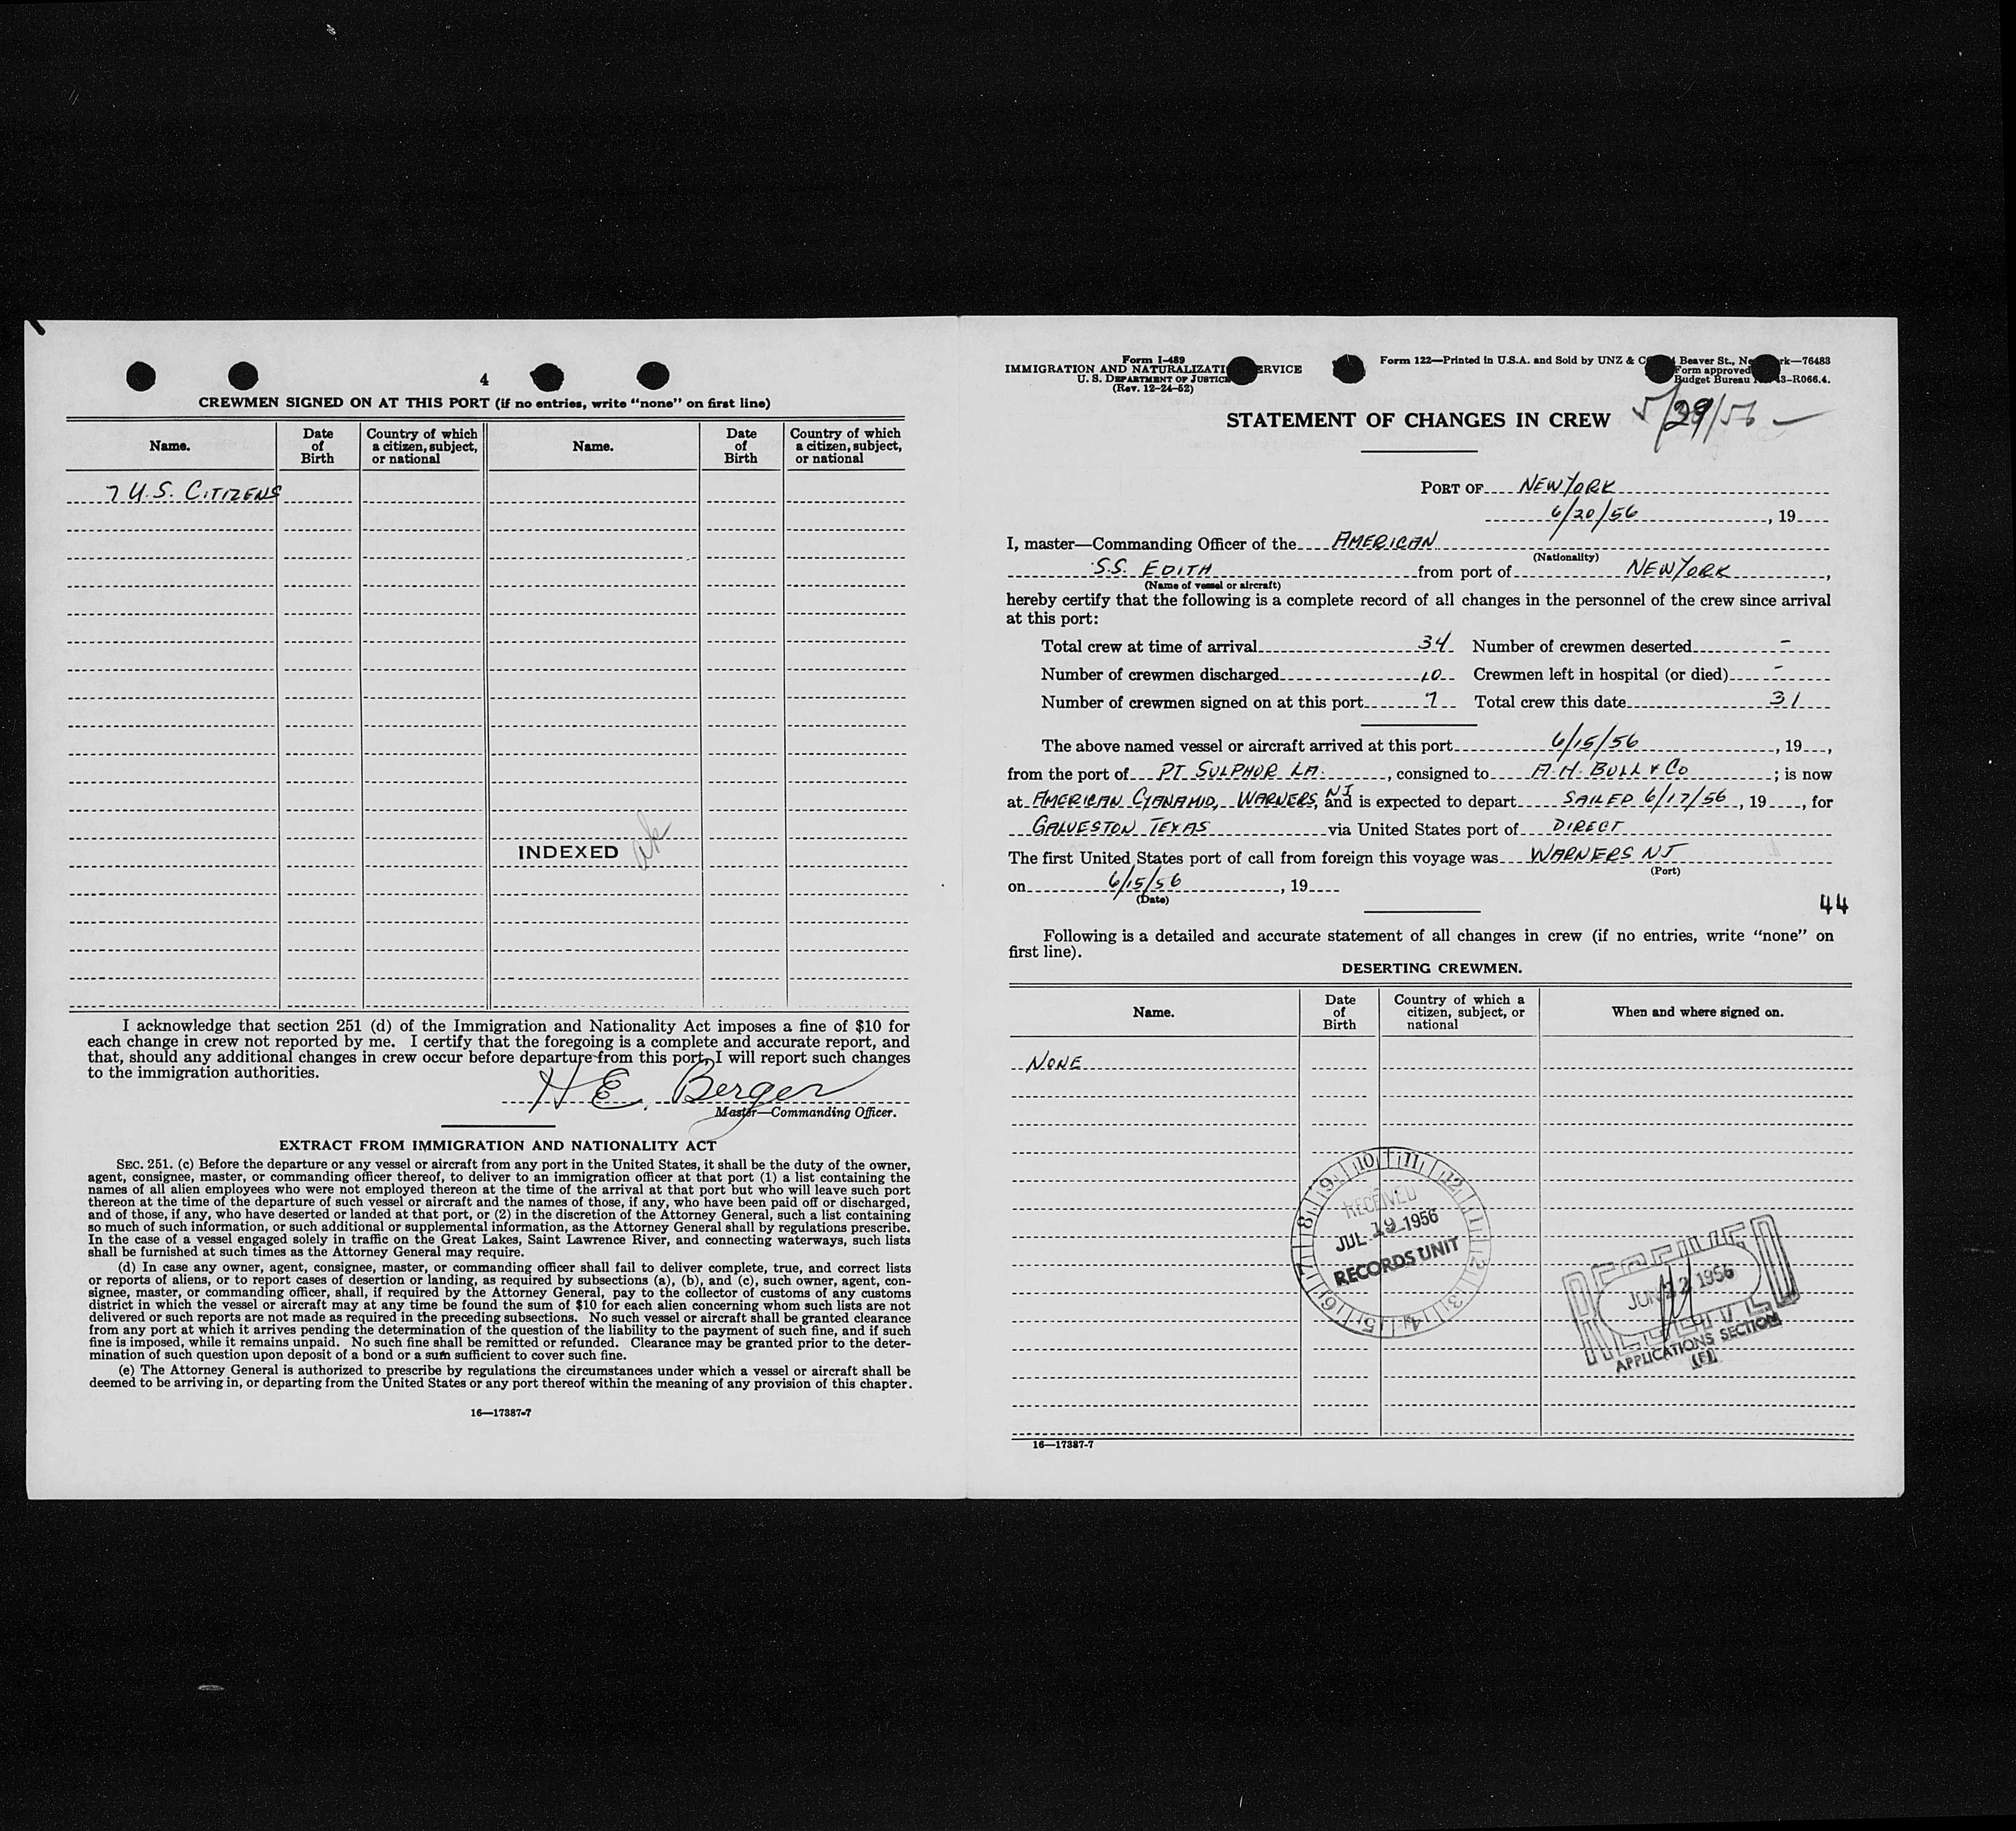 4
CREWMEN SIGNED ON AT THIS PORT (if no entries, write “none” on first line)
Name. Date of Birth Country of which a citizen, subject, or national Name. Date of Birth Country of which a citizen, subject, or national
7 U.S. CITIZENS
INDEXED
I acknowledge that section 251 (d) of the Immigration and Nationality Act imposes a fine of $10 for
each change in crew not reported by me. I certify that the foregoing is a complete and accurate report, and
that, should any additional changes in crew occur before departure from this port, I will report such changes
to the immigration authorities.
H E. Berger
Master—Commanding Officer.
EXTRACT FROM IMMIGRATION AND NATIONALITY ACT
SEC. 251. (c) Before the departure or any vessel or aircraft from any port in the United States, it shall be the duty of the owner,
agent, consignee, master, or commanding officer thereof, to deliver to an immigration officer at that port (1) a list containing the
names of all alien employees who were not employed thereon at the time of the arrival at that port but who will leave such port
thereon at the time of the departure of such vessel or aircraft and the names of those, if any, who have been paid off or discharged,
and of those, if any, who have deserted or landed at that port, or (2) in the discretion of the Attorney General, such a list containing
so much of such information, or such additional or supplemental information, as the Attorney General shall by regulations prescribe.
In the case of a vessel engaged solely in traffic on the Great Lakes, Saint Lawrence River, and connecting waterways, such lists
shall be furnished at such times as the Attorney General may require.
(d) In case any owner, agent, consignee, master, or commanding officer shall fail to deliver complete, true, and correct lists
or reports of aliens, or to report cases of desertion or landing, as required by subsections (a), (b), and (c), such owner, agent, con-
signee, master, or commanding officer, shall, if required by the Attorney General, pay to the collector of customs of any customs
district in which the vessel or aircraft may at any time be found the sum of $10 for each alien concerning whom such lists are not
delivered or such reports are not made as required in the preceding subsections. No such vessel or aircraft shall be granted clearance
from any port at which it arrives pending the determination of the question of the liability to the payment of such fine, and if such
fine is imposed, while it remains unpaid. No such fine shall be remitted or refunded. Clearance may be granted prior to the deter-
mination of such question upon deposit of a bond or a sum sufficient to cover such fine.
(e) The Attorney General is authorized to prescribe by regulations the circumstances under which a vessel or aircraft shall be
deemed to be arriving in, or departing from the United States or any port thereof within the meaning of any provision of this chapter.
16—17387-7
Form I-489
IMMIGRATION AND NATURALIZATI ERVICE
U. S. DEPARTMENT OF JUSTICE
(Rev. 12-24-52)
Form 122—Printed in U.S.A. and Sold by UNZ & C Beaver St., Ne rk—76483
Form approved
Budget Bureau 43-R066.4.
STATEMENT OF CHANGES IN CREW 5/29/56 —
PORT OF NEW YORK
6/20/56, 19
I, master—Commanding Officer of the AMERICAN
(Nationality)
S.S. EDITH from port of NEW YORK,
(Name of vessel or aircraft)
hereby certify that the following is a complete record of all changes in the personnel of the crew since arrival
at this port:
Total crew at time of arrival 34 Number of crewmen deserted -
Number of crewmen discharged 10 Crewmen left in hospital (or died) -
Number of crewmen signed on at this port 7 Total crew this date 31
The above named vessel or aircraft arrived at this port 6/15/56, 19,
from the port of PT SULPHUR LA., consigned to A.H. BULL & Co; is now
at AMERICAN CYANAMID, WARNERS, NJ and is expected to depart SAILED 6/17/56, 19, for
GALVESTON TEXAS via United States port of DIRECT
The first United States port of call from foreign this voyage was WARNERS NJ
(Port)
on 6/15/56, 19
(Date)
44
Following is a detailed and accurate statement of all changes in crew (if no entries, write “none” on
first line).
DESERTING CREWMEN.
Name. Date of Birth Country of which a citizen, subject, or national When and where signed on.
NONE
10 11 12 1 2 3 4 5 6 7 8 9
RECEIVED
JUL 19 1956
RECORDS UNIT
RECEIVED
JUN 22 1956
APPLICATIONS SECTION
16—17387-7